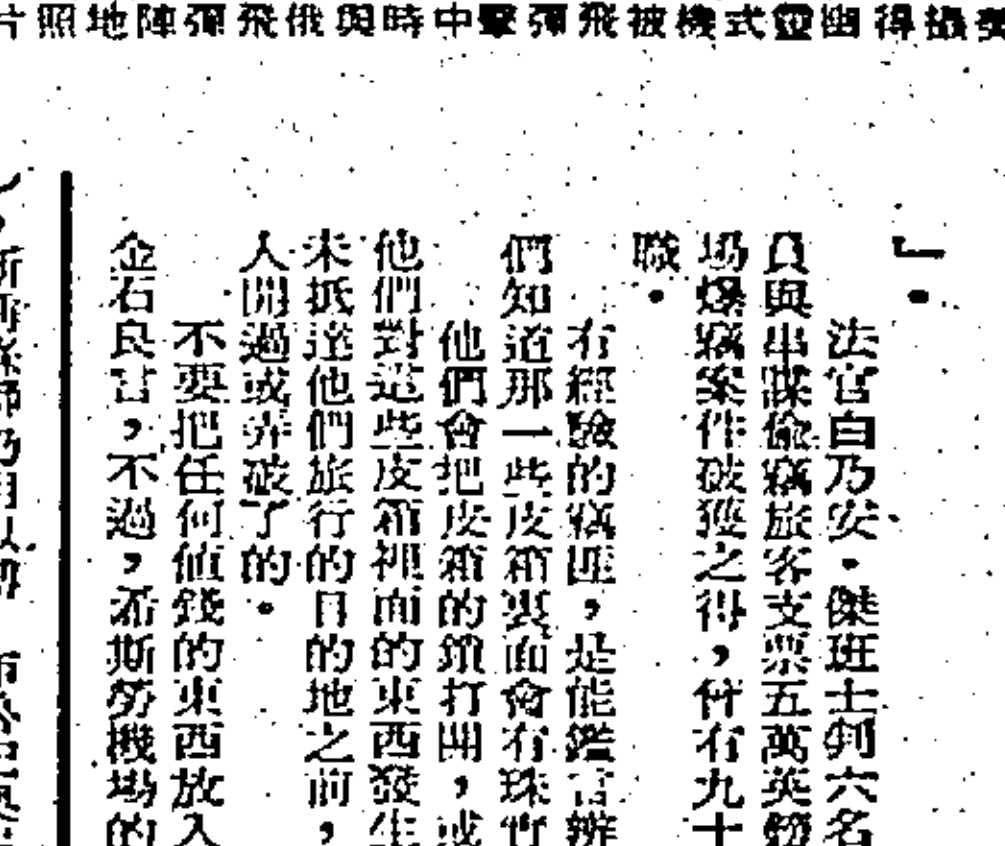 美攝得幽靈式機被飛彈擊中時與俄飛彈陣地照片
』。
法官白乃安・傑班士判六名
員與串謀偷竊旅客支票五萬英鎊
場爆竊案件破獲之得，併有九十
職。
有經驗的竊匪，是能鑑言辨
們知道那一些皮箱裏面會有珠寶
他們會把皮箱的鎖打開，或
他們對這些皮箱裡面的東西發生
未抵達他們旅行的目的地之前，
人開過或弄破了的。
不要把任何值錢的東西放入
金石良言，不過，希斯勞機場的